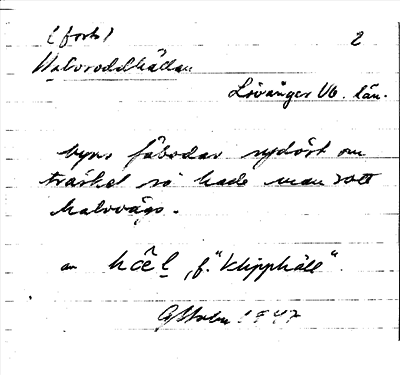 (forts) 2
Halvroddhällan
Lövånger Vb. län.
byns fäbodar sydöst om
träsket så hade man rott
halvvägs.
an hœl, f. "klipphäll".
1947